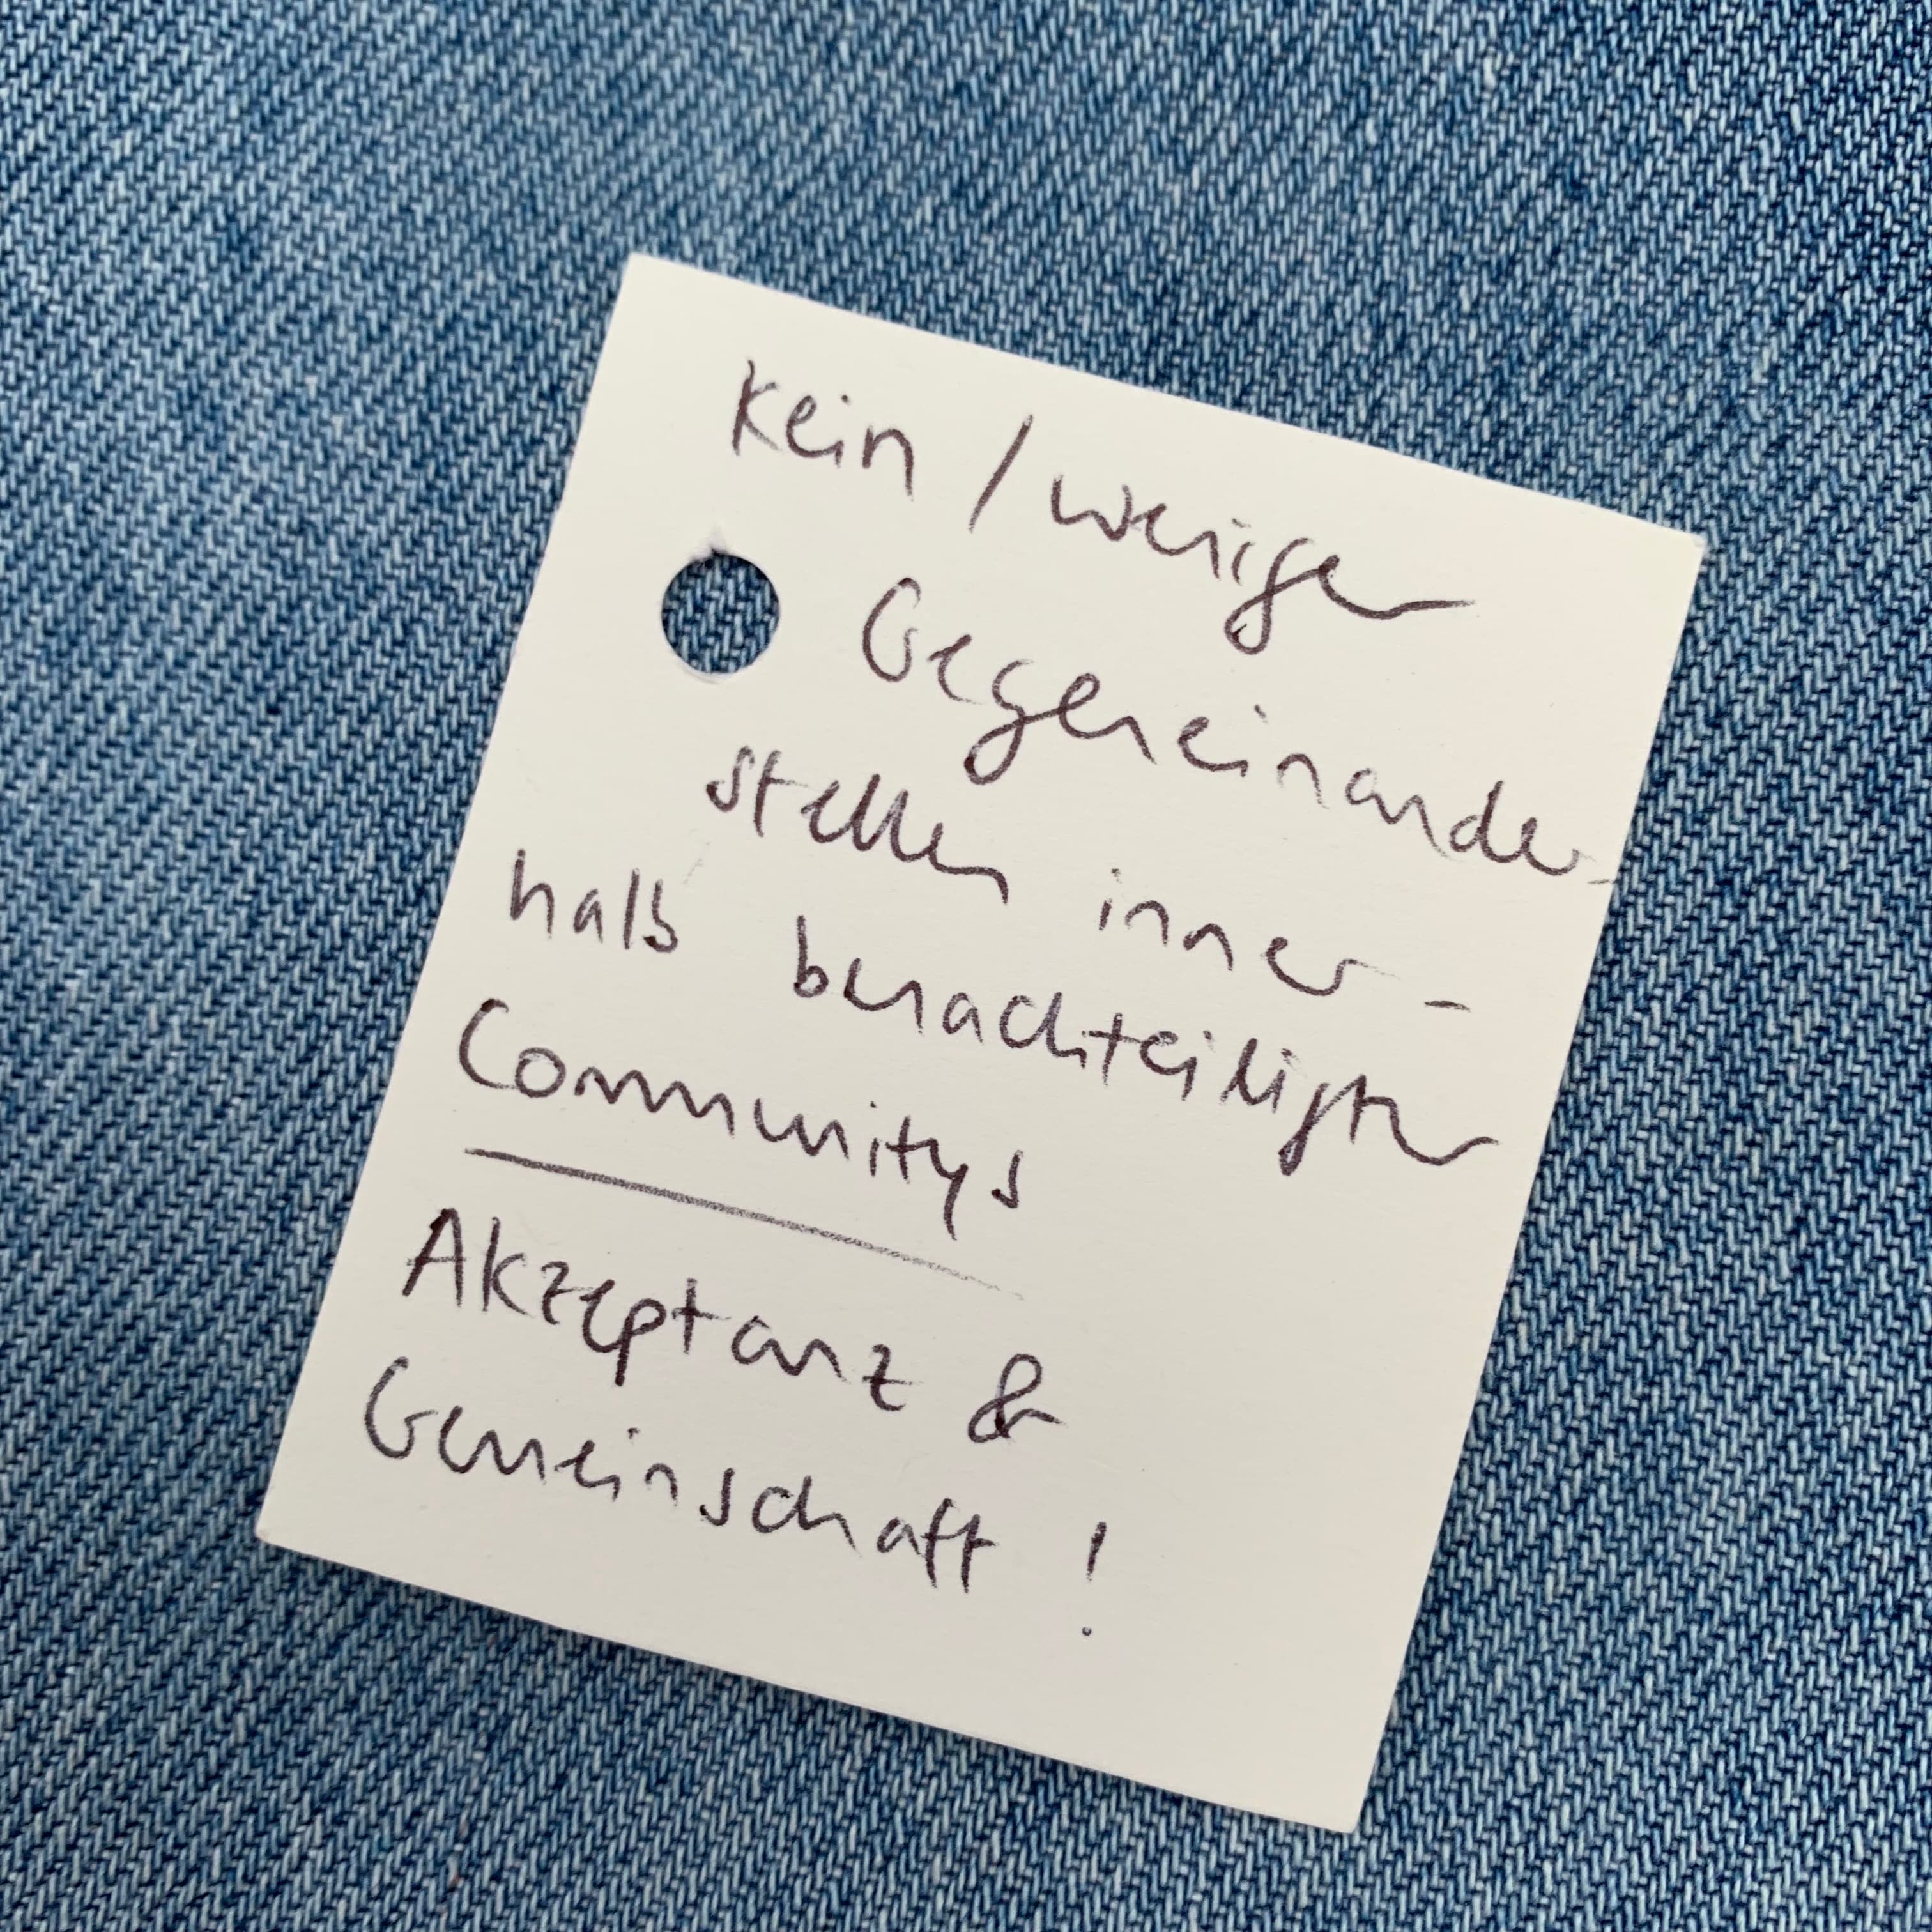 Kein / weniger
Gegeneinander-
stellen inner-
halb benachteiligter
Communitys
Akzeptanz &
Gemeinschaft !